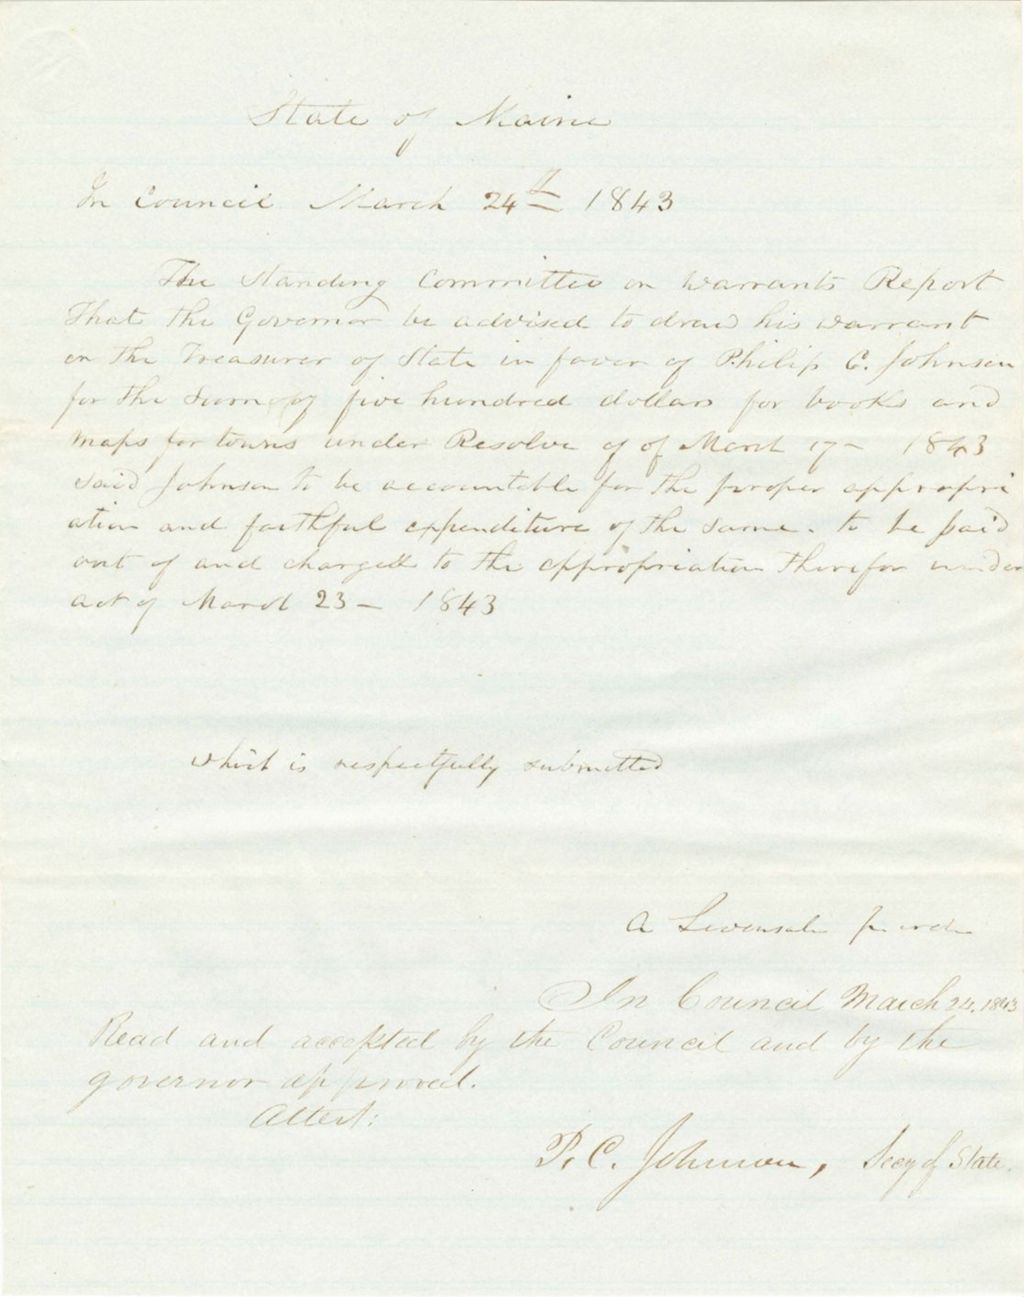 State of Maine
In Council March 24th 1843
The Standing Committee on Warrants Report
That the Governor be advised to draw his warrant
on the Treasurer of State in favor of Philip C. Johnson
for the Sum of of five hundred dollars for books and
maps for towns under Resolve of of March 17 - 1843
said Johnson to be accountable for the proper appropri
ation and faithful expenditure of the same. to be paid
out of and charged to the appropriation therefor under
act of March 23 - 1843
which is respectfully submitted
A Levensaler per order
In Council March 24, 1843
Read and accepted by the Council and by the
governor approved.
Attest:
P. C. Johnson, Secy of State.